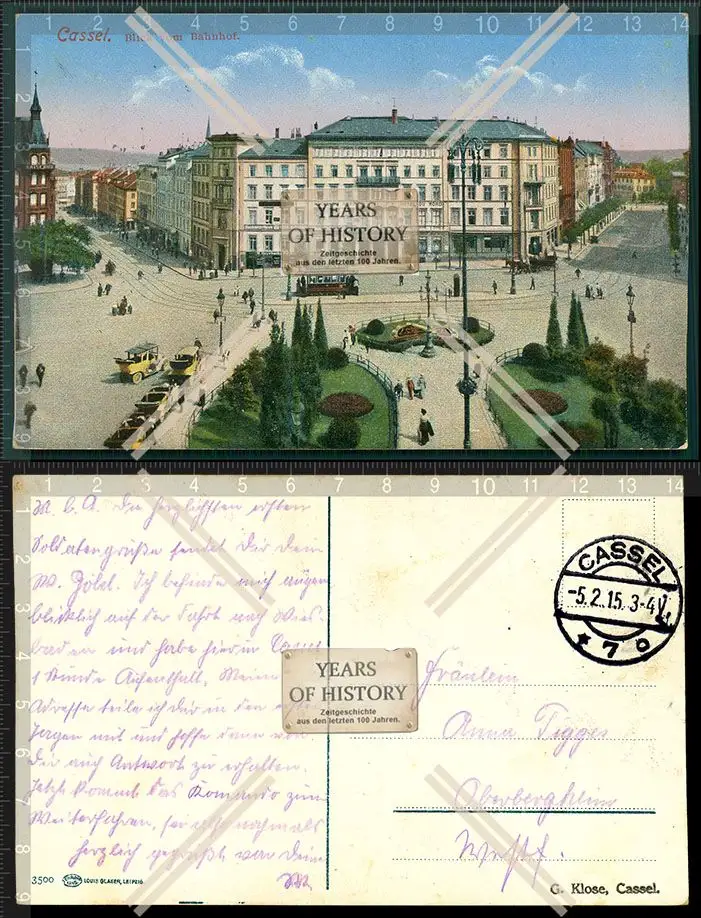 Cassel. Blick vom Bahnhof.
YEARS
OF HISTORY
Zeitgeschichte
aus den letzten 100 Jahren.
M. l. A. Die herzlichsten ersten
Soldatengrüße sendet Dir Dein
W. Ich befinde mich augen
blicklich auf der Fahrt nach Wies-
baden und habe hier in Cassel
1 Stunde Aufenthalt. Meine
Adresse teile ich Dir in den ersten
Tagen mit und hoffe dann von
Dir auch Antwort zu erhalten.
Jetzt kommt das Komando zum
Weiterfahren, sei also nochmals
herzlich gegrüßt von Dein
CASSEL
-5.2.15.3-4
* 7
YEARS
OF HISTORY
Zeitgeschichte
aus den letzten 100 Jahren.
Fräulein
Anna Tigges
Westf.
3500 LOUIS GLASER, LEIPZIG
G. Klose, Cassel.